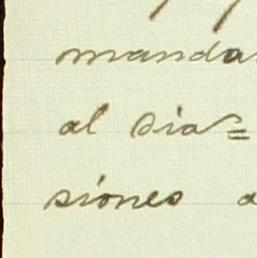 manda
al dia=
siones a